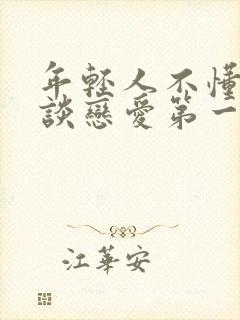 年輕人不懂
談戀愛第一
江華安